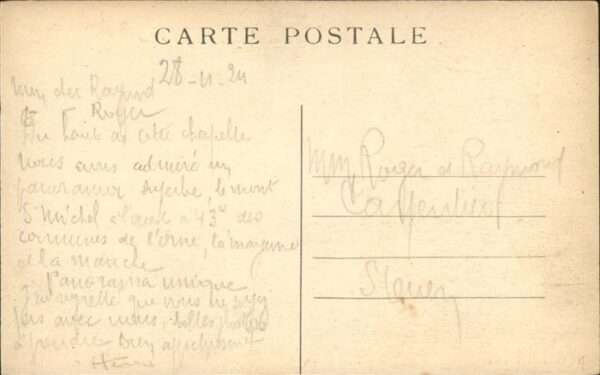 CARTE POSTALE
28-11-24
Mon cher Raymond
et Roger
Du haut de cette chapelle
nous avons admiré un
panorama superbe, le mont
St Michel 43 des
communes de l'orne, la mayenne
et la manche
Panorama unique
que vous ne soyez
pas avec nous, belles photos
à prendre
MM Roger et Raymond
Carpentier